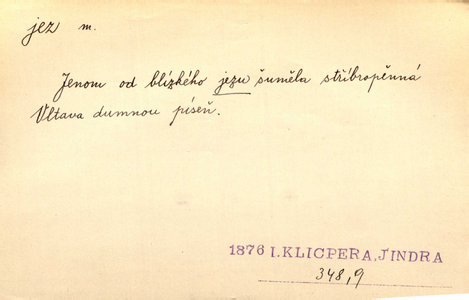 jez m.
Jenom od blízkého jezu šuměla stříbropěnná
Vltava dumnou píseň.
1876 I. KLICPERA, JINDRA
348,9